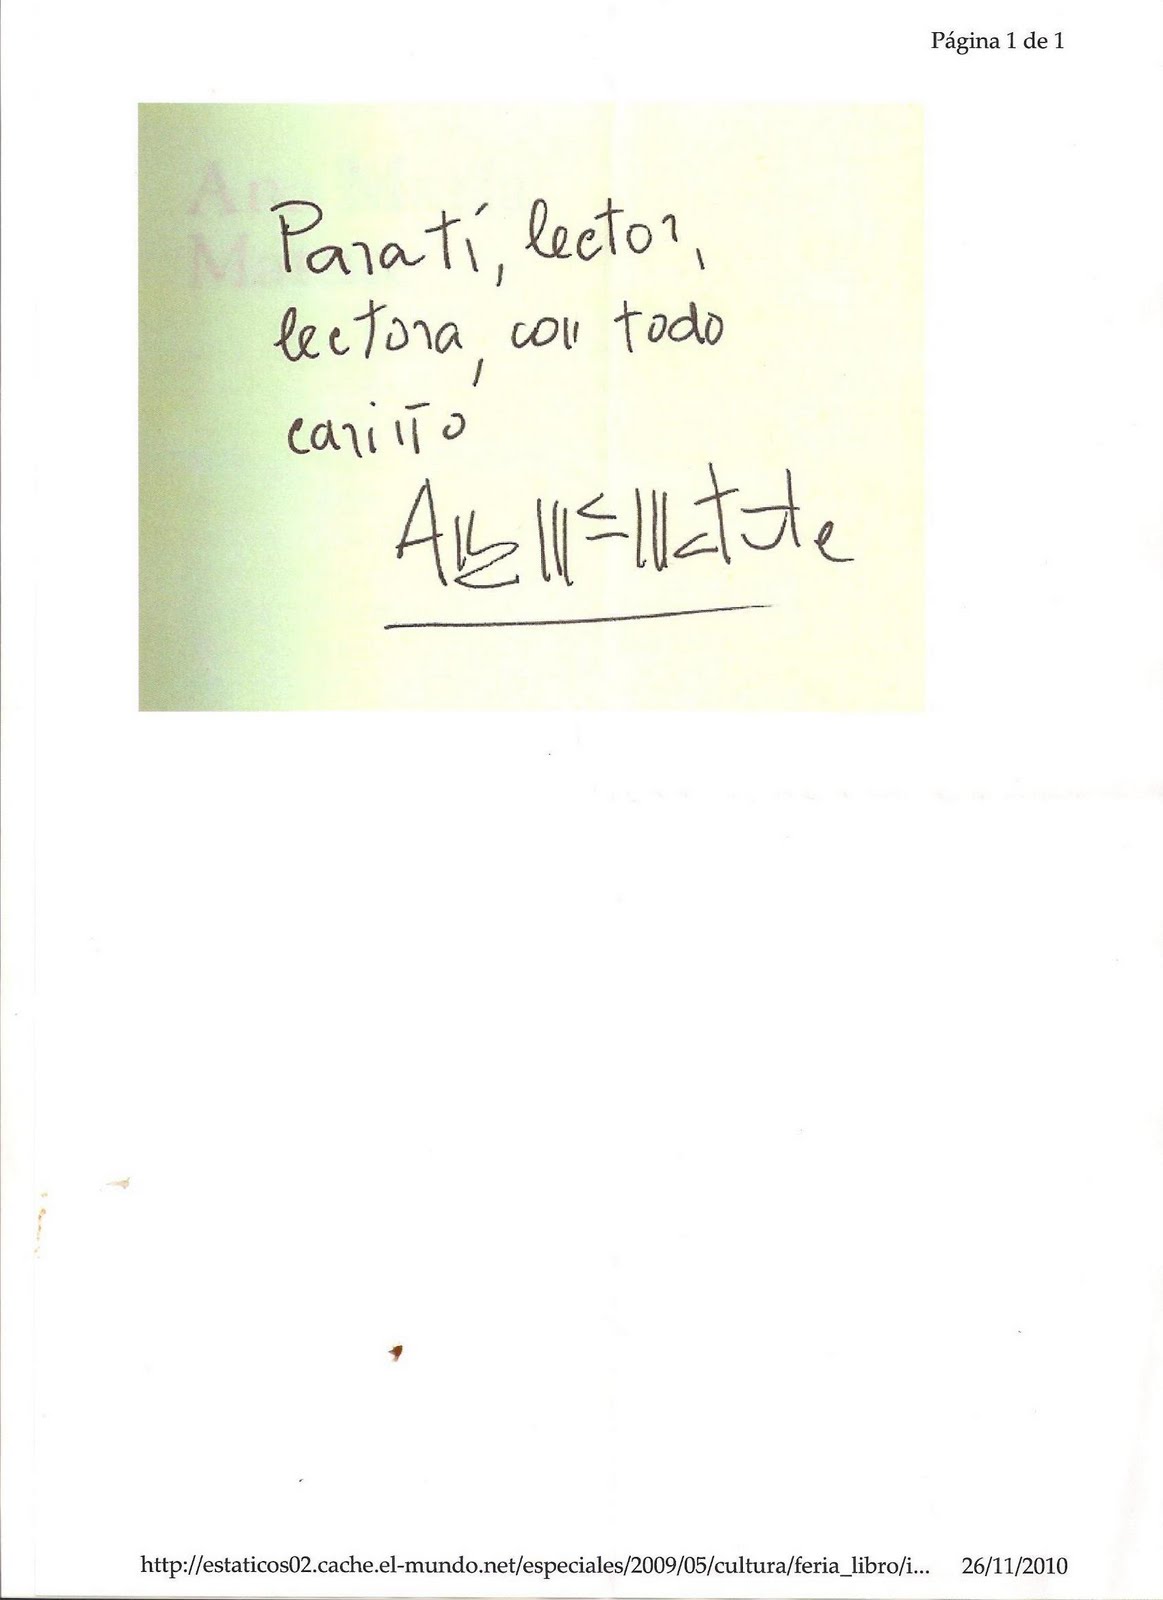 Página 1 de 1
Para tí, lector,
lectora, con todo
cariño
Ana Mª Matute
http://estaticos02.cache.el-mundo.net/especiales/2009/05/cultura/feria_libro/i... 26/11/2010